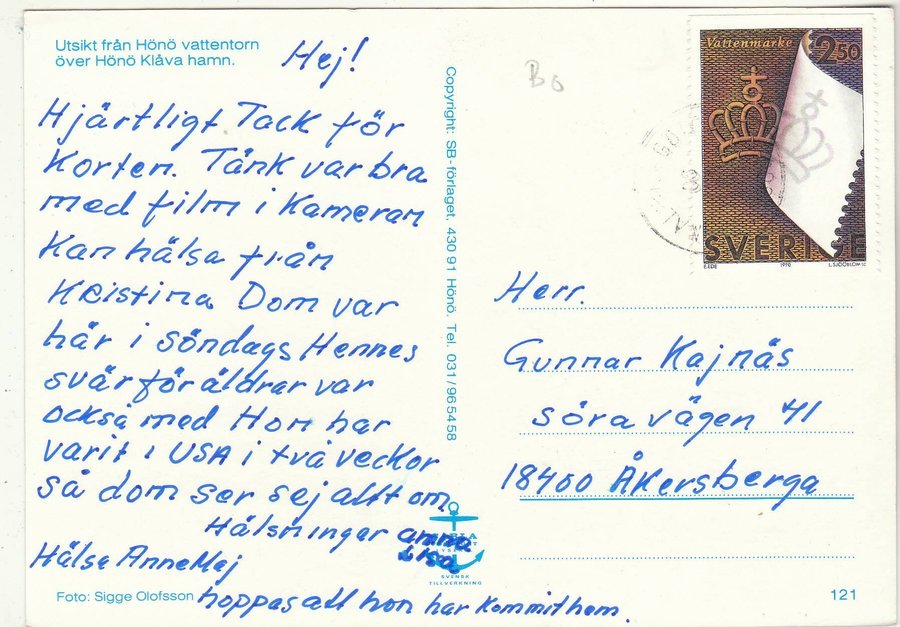 Utsikt från Hönö vattentorn
över Hönö Klåva hamn.
Hej!
Hjärtligt Tack för
Korten. Tänk var bra
med film i Kameran
Kan hälsa från
Kristina. Dom var
här i söndags Hennes
svärföräldrar var
också med Hon har
varit i USA i två veckor
så dom ser sej allt om
Hälsningar anna
Lisa
Hälsa AnneMaj
hoppas att hon har Kommit hem.
Foto: Sigge Olofsson
SVENSK
TILLVERKNING
Copyright: SB-förlaget, 430 91 Hönö. Tel. 031/96 54 58
Bo
Vattenmärke 2.50
SVERIGE
1990
L. SJÖÖBLOM SC
Herr.
Gunnar Kajnäs
Söra vägen 41
18400 Åkersberga
121